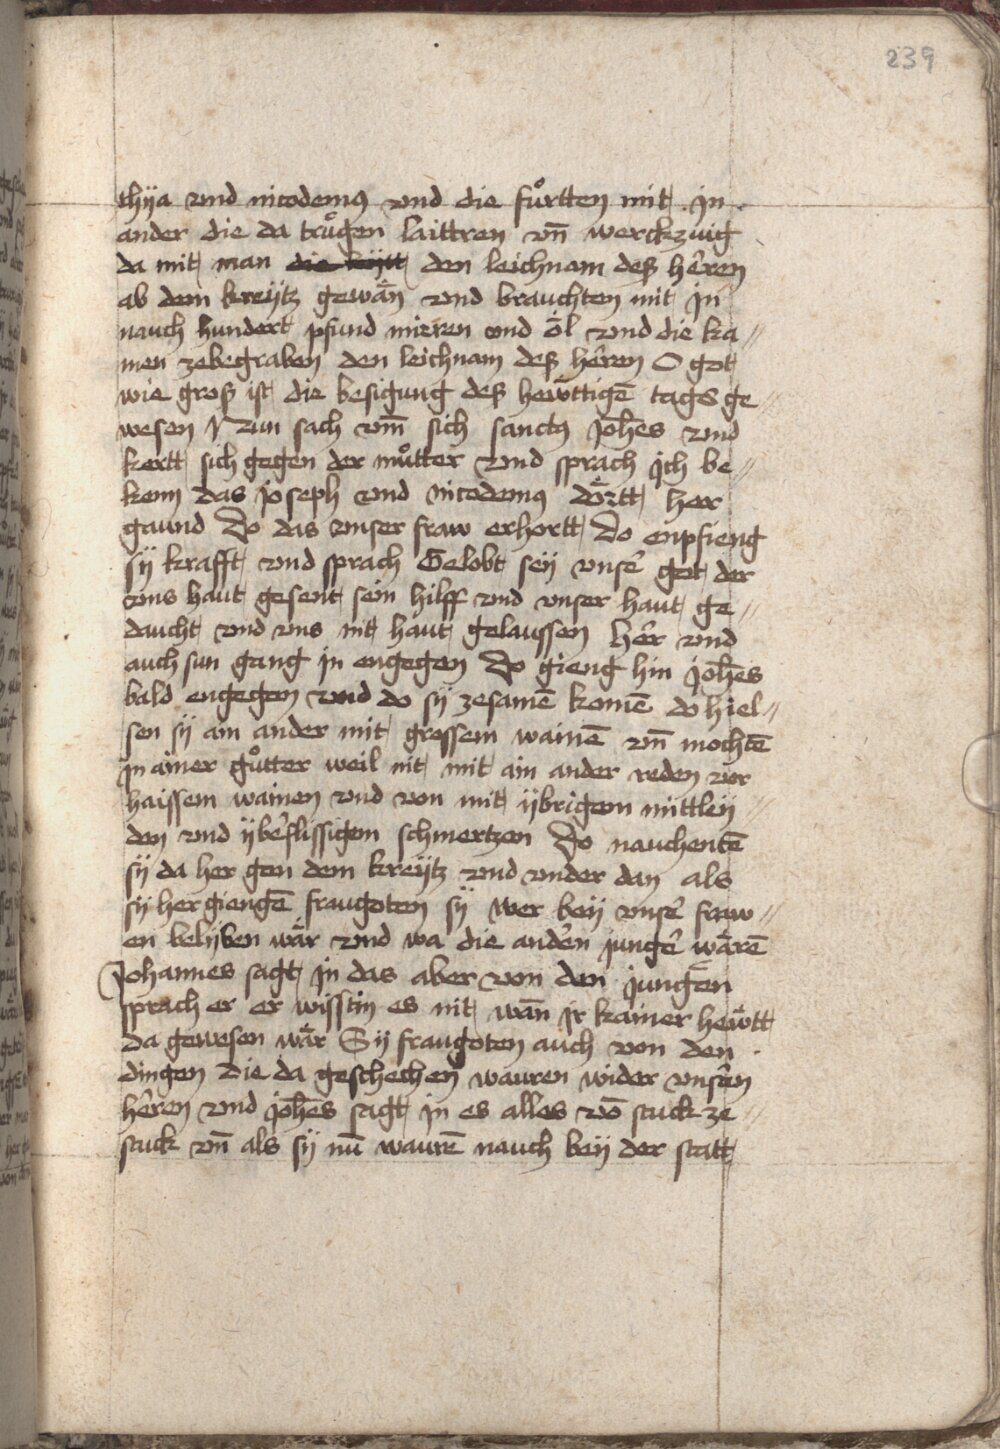 239
thyia vnd nicodemꝰ vnd die fuͦrtten mit in
ander die da truͦgen laittren vn̄ werckzuig
da mit man die leÿtt den leichnam deß heren
ab dem kreÿtz gewän̄ vnd brauchten mit in
nauch hundert pfund mirren vnd öl vnd die ka //
men zebegraben den leichnam deß heren O got
wie groß ist die besigung deß hewttigē tags ge //
wesen Nun sach vm̄ sich sanctꝰ Joh̄es vnd
kertt sich gegen der muͦtter vnd sprach ich be //
kenn das Joseph vnd Nicodemꝰ dörtt her
gaund Do das vnser fraw erhortt do enpfieng
sÿ krafft vnd sprach Gelobt seÿ vnser got der
vns haut gesent sein hilff vnd vnser haut ge //
daucht vnd vns nit haut gelaussen her vnd
auch sun gang in engegen Do gieng hin Joh̄es
bald engegen vnd do sÿ zesamē komē do hiel //
sen sÿ ain ander mit grossem wainē vn̄ mochtē
in ainer guͦtter weil nit mit ain ander reden vor
haissem wainen vnd von mit ÿbrigem mittleÿ //
den vnd ÿberflissigem schmertzen Do nauchentē
sÿ da her gen dem kreÿtz vnd vnder dan als
sÿ her giengē fraugoten sÿ wer beÿ vnser fraw //
en belÿben wär vnd wa die andern junger wärē
Johannes sagt in das aber von den jungen
sprach er er wisstin es nit wān ir kainer hewtt
da gewesen wär Sÿ fraugoten auch von den
dingen die da geschechen wauren wider vnsern
heren vnd joh̄es sagt in es alles vō stuck ze //
stuck vn̄ als sÿ nū waurē nauch beÿ der statt